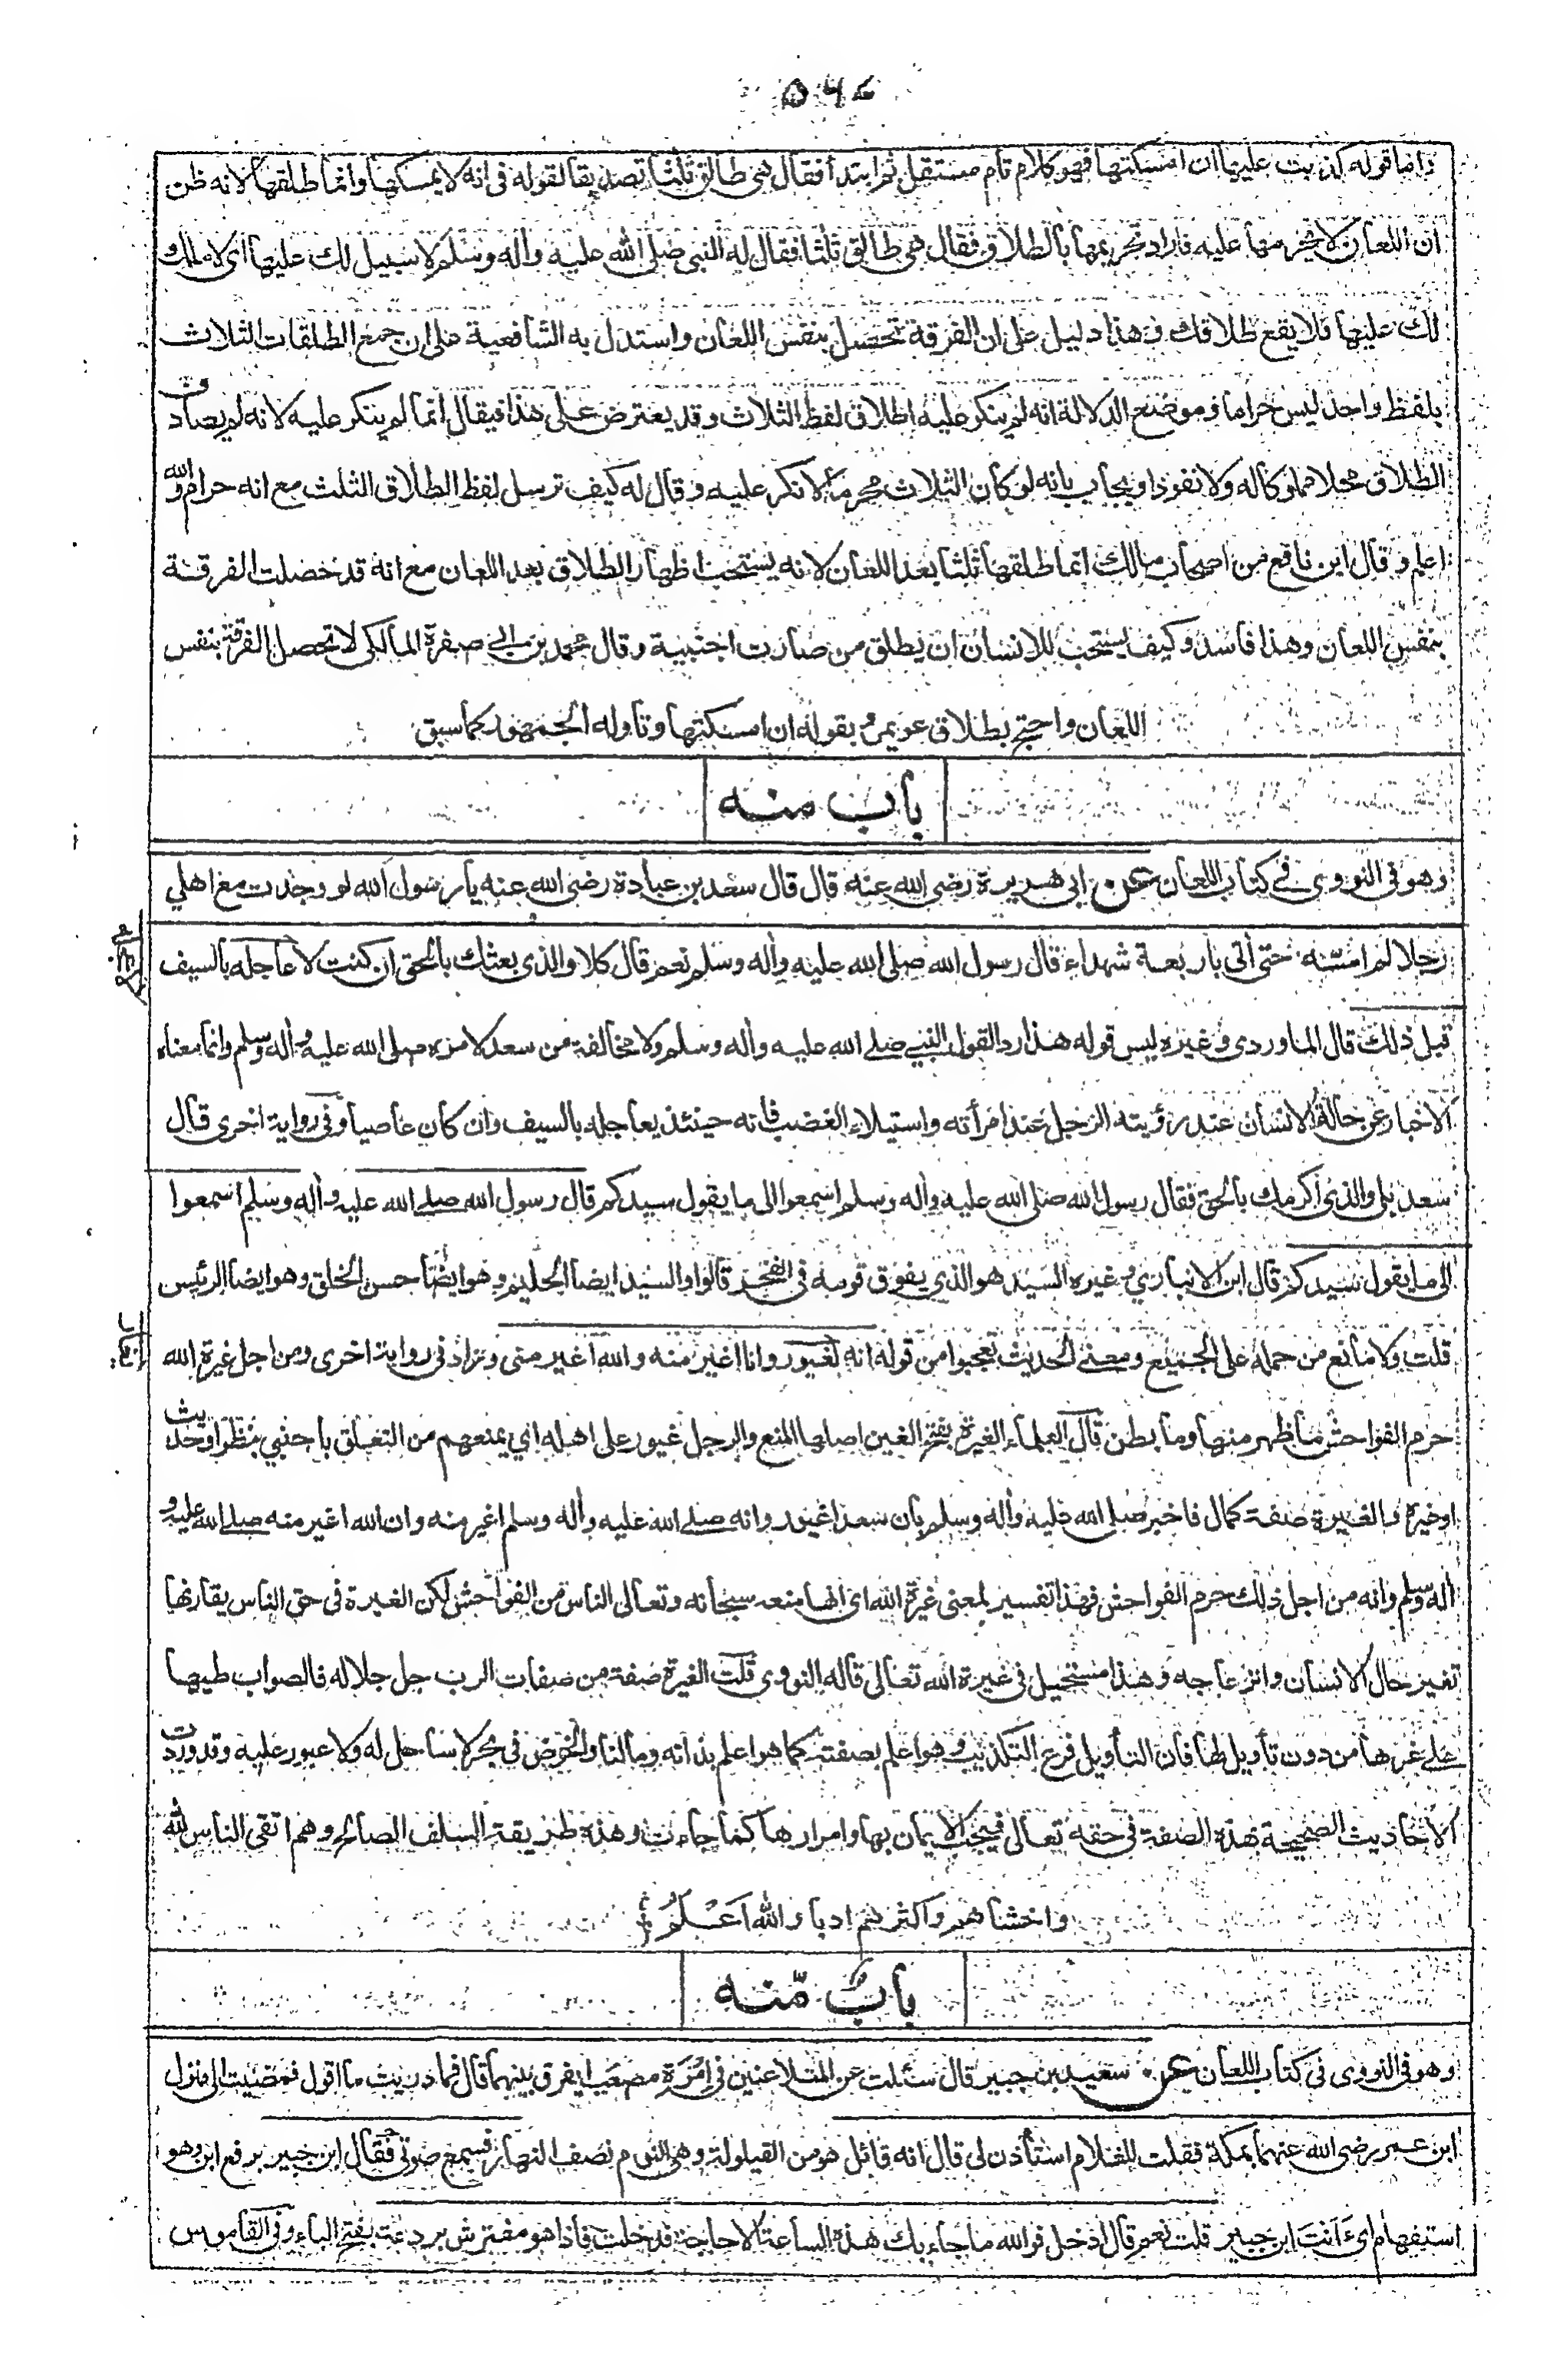 واما قوله كذبت عليها ان امسكتها فهو كلام تام مستقل ثم ابتدأ فقال هي طالق ثلثا تصديقا لقوله في انه لا يمسكها وانما طلقها لانه ظن
ان اللعان لا يحرمها عليه فاراد تحريمها بالطلاق فقال هي طالق ثلثا فقال له النبي صلى الله عليه وأله وسلم لا سبيل لك عليها اى لا ملك
لك عليها فلا يقع طلاقك وهذا دليل على ان الفرقة تحصل بنفس اللعان واستدل به الشافعية على ان جمع الطلقات الثلاث
بلفظ واحد ليس حراما وموضع الدلالة انه لم ينكر عليه اطلاق لفظ الثلاث وقد يعترض على هذا فيقال انما لم ينكر عليه لانه لم يصادف
الطلاق محلا مملوكا له ولا نفوذا ويجاب بانه لو كان الثلاث محرما لانكر عليه وقال له كيف ترسل لفظ الطلاق الثلث مع انه حرام والله
اعلم وقال ابن نافع من اصحاب مالك انما طلقها ثلثا بعد اللعان لانه يستحب اظهار الطلاق بعد اللعان مع انه قد حصلت الفرقة
بنفس اللعان وهذا فاسد وكيف يستحب للانسان ان يطلق من صارت اجنبية وقال محمد بن ابي صفرة المالكى لا تحصل الفرقة بنفس
اللعان واحتج بطلاق عويمر وبقوله ان امسكتها وتاوله الجمهور كما سبق
باب منه
وهو في النووى في كتاب اللعان عن ابى هريرة رضي الله عنه قال قال سعد بن عبادة رضى الله عنه يا رسول الله لو وجدت مع اهلي
رجلا لم امسّه حتى أتى باربعة شهداء قال رسول الله صلى الله عليه وأله وسلم نعم قال كلا والذى بعثك بالحق ان كنت لأعاجله بالسيف
قبل ذلك قال الماوردى وغيره ليس قوله هذا ردا لقول النبي صلى الله عليه وأله وسلم ولا مخالفة من سعد لامره صلى الله عليه وأله وسلم وانما معناه
الاخبار عن حالة الانسان عند رؤيته الرجل عند امرأته واستيلاء الغضب فانه حينئذ يعاجله بالسيف وان كان عاصيا وفى رواية اخرى قال
سعد بلى والذى اكرمك بالحق فقال رسول الله صلى الله عليه وأله وسلم اسمعوا الى ما يقول سيدكم قال رسول الله صلى الله عليه وأله وسلم اسمعوا
الى ما يقول سيدكم قال ابن الانبارى وغيره السيد هو الذى يفوق قومه فى الفخر قالوا والسيد ايضا الحليم وهو ايضا حسن الخلق وهو ايضا الرئيس
قلت ولا مانع من حمله على الجميع ومعنى الحديث تعجبوا من قوله انه لغيور وانا اغير منه والله اغير منى وزاد فى رواية اخرى ومن اجل غيرة الله
حرم الفواحش ما ظهر منها وما بطن قال العلماء الغيرة بفتح الغين اصلها المنع والرجل غيور على اهله اي يمنعهم من التعلق باجنبي بنظر او حديث
او غيره والغيرة صفة كمال فاخبر صلى الله عليه وأله وسلم بان سعدا غيور وانه صلى الله عليه وأله وسلم اغير منه وان الله اغير منه صلى الله عليه و
أله وسلم وانه من اجل ذلك حرم الفواحش فهذا تفسير لمعنى غيرة الله اى انها منعه سبحانه وتعالى الناس من الفواحش لكن الغيرة فى حق الناس يقارنها
تغير حال الانسان وانزعاجه وهذا مستحيل فى غيرة الله تعالى قاله النووى قلت الغيرة صفة من صفات الرب جل جلاله فالصواب طيها
على غرها من دون تأويل لها فان التأويل فرع التكذيب وهو اعلم بصفته كما هو اعلم بذاته وما لنا والخوض فى بحر لا ساحل له ولا عبور عليه وقد وردت
الاحاديث الصحيحة بهذه الصفة فى حقه تعالى فيجب الايمان بها وامرارها كما جاءت وهذه طريقة السلف الصالح وهم اتقى الناس لله
واخشاهم واكثرهم ادبا والله اعلم
باب منه
وهو فى النووى فى كتاب اللعان عن سعيد بن جبير قال سئلت عن المتلاعنين في امرة مصعب ايفرق بينهما قال فما دريت ما اقول فمضيت الى منزل
ابن عمر رضى الله عنهما بمكة فقلت للغلام استأذن لى قال انه قائل هو من القيلولة وهى النوم نصف النهار فسمع صوتى فقال ابن جبير برفع ابن وهو
استفهام اى أانت ابن جبير قلت نعم قال ادخل فوالله ما جاء بك هذه الساعة الا حاجة فدخلت فاذا هو مفترش بردعة بفتح الباء وفى القاموس